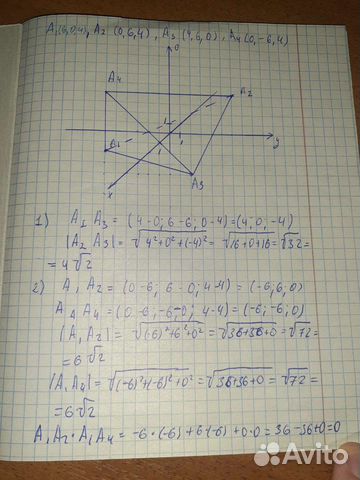 A₁(6,0,4), A₂ (0,6,4), A₃ (4,6,0), A₄ (0,-6,4)
A₄
A₂
A₁
1
1
1
y
x
A₃
1) A₂ A₃ = (4-0; 6-6; 0-4)=(4; 0; -4)
|A₂ A₃| = √4²+0²+(-4)² = √16+0+16 = √32 =
= 4√2
2) A₁ A₂ = (0-6; 6-0; 4-4) = (-6; 6; 0)
A₁ A₄ = (0-6; -6-0; 4-4) = (-6; -6; 0)
|A₁ A₂| = √(-6)²+6²+0² = √36+36+0 = √72 =
= 6√2
|A₁ A₄| = √(-6)²+(-6)²+0² = √36+36+0 = √72 =
= 6√2
A₁A₂ · A₁A₄ = -6·(-6)+6·(-6)+0·0 = 36-36+0=0
Avito